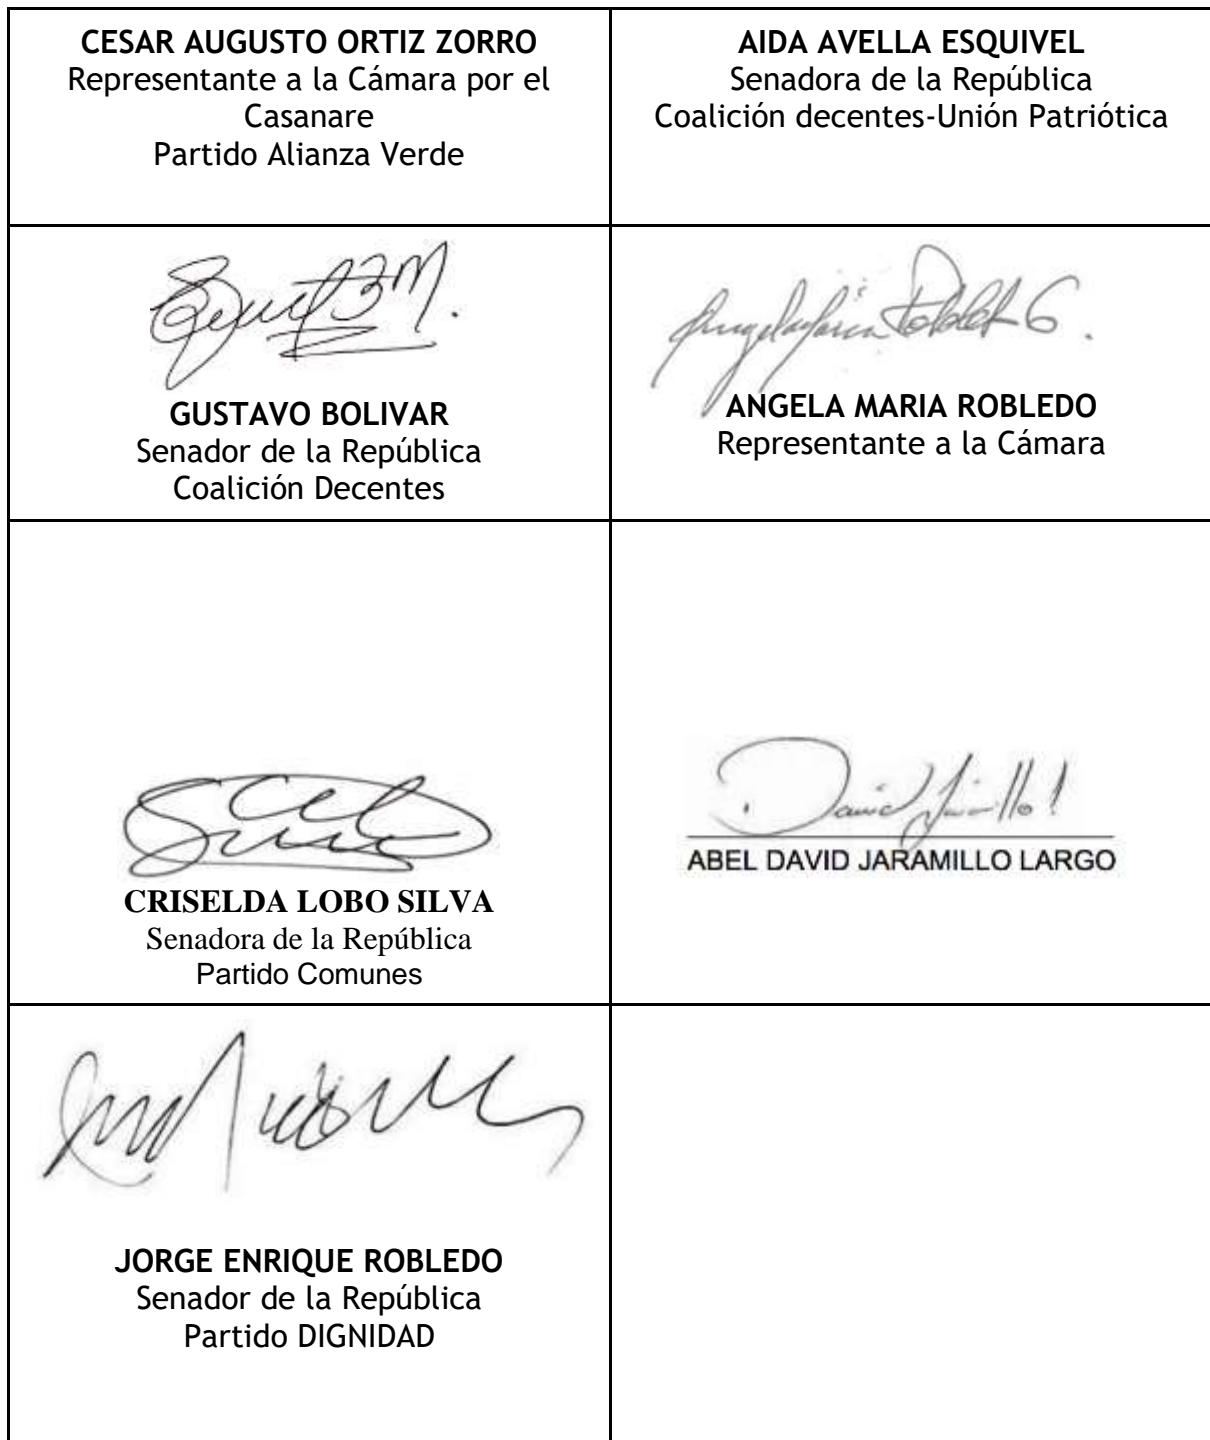 CESAR AUGUSTO ORTIZ ZORRO
Representante a la Cámara por el
Casanare
Partido Alianza Verde
AIDA AVELLA ESQUIVEL
Senadora de la República
Coalición decentes-Unión Patriótica
GUSTAVO BOLIVAR
Senador de la República
Coalición Decentes
ANGELA MARIA ROBLEDO
Representante a la Cámara
CRISELDA LOBO SILVA
Senadora de la República
Partido Comunes
ABEL DAVID JARAMILLO LARGO
JORGE ENRIQUE ROBLEDO
Senador de la República
Partido DIGNIDAD